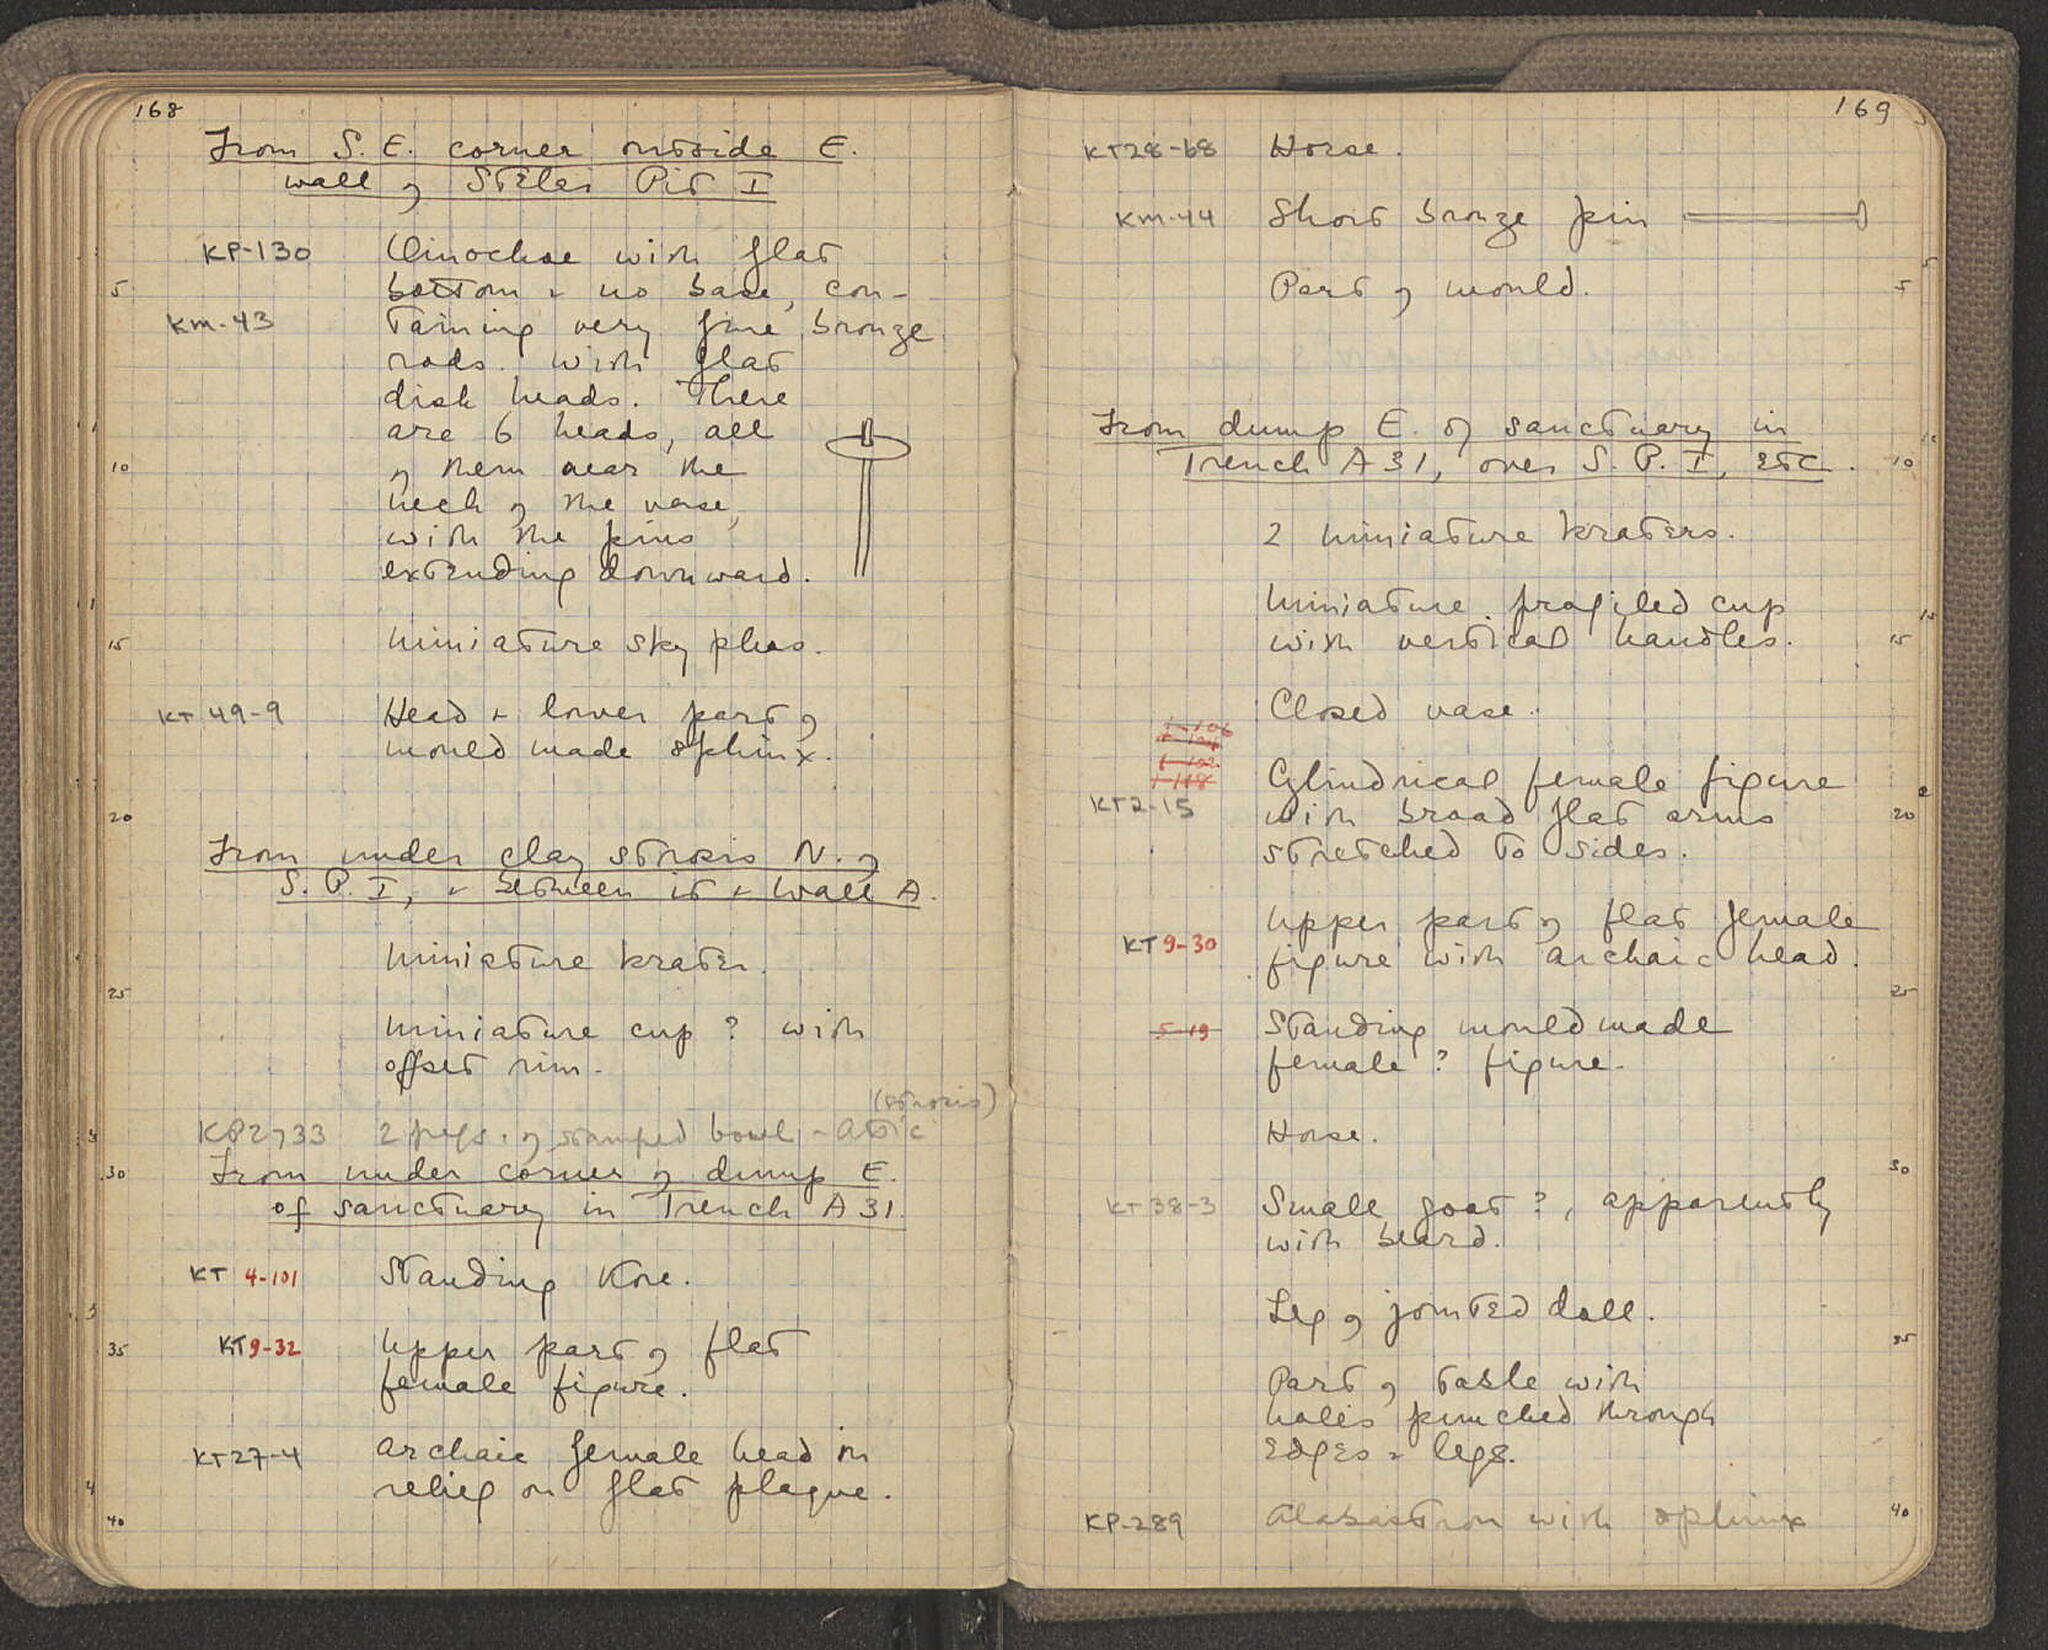 168
From S. E. corner outside E.
wall of Steles Pit I
KP-130 Oinochoe with flat
5 bottom + no base, con-
KM-43 taining very fine bronze
rods with flat
disk heads. There
are 6 heads, all
10 of them near the
neck of the vase,
with the pins
extending downward.
15 Miniature skyphos.
KT 49-9 Head + lower part of
mould made sphinx.
20
From under clay strosis N. of
S. P. I, + between it + Wall A.
Miniature krater.
25
Miniature cup ? with
offset rim.
(strosis)
KP2733 2 pcs. of stamped bowl - Attic
30 From under corner of dump E.
of sanctuary in Trench A31.
KT 4-101 Standing Kore.
35 KT 9-32 Upper part of flat
female figure.
KT27-4 Archaic female head in
relief on flat plaque.
40
169
KT28-68 Horse.
KM-44 Short bronze pin
Part of mould. 5
From dump E. of sanctuary in
Trench A31, over S. P. I, etc. 10
2 miniature kraters.
Miniature profiled cup
with vertical handles. 15
Closed vase.
Cylindrical female figure
KT2-15 with broad flat arms 20
stretched to sides.
Upper part of flat female
KT 9-30 figure with archaic head.
25
5-19 Standing mould made
female ? figure.
Horse.
30
KT 38-3 Small goat ?, apparently
with beard.
Leg of jointed doll.
35
Part of table with
holes punched through
edges + legs.
KP-289 Alabastron with sphinx 40